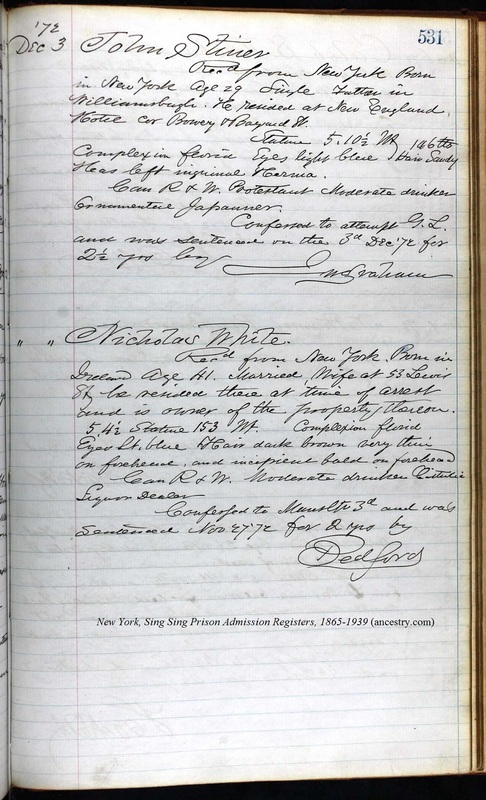 '72
Dec 3
531
John Stiner
Rec'd from New York Born
in New York Age 29 Single Father in
Williamsburgh. He resided at New England
Hotel cor Bowery & Bayard St.
Stature 5.10½ Wt 146 lbs
Complexion florid Eyes light blue Hair Sandy
Has left inguinal Hernia.
Can R & W. Protestant Moderate drinker
Ornamental Japanner.
Confessed to attempt G. L.
and was sentenced on the 3d Dec '72 for
2½ yrs by
" " Nicholas White.
Rec'd from New York. Born in
Ireland Age 41. Married, Wife at 53 Lewis
St, he resided there at time of arrest
and is owner of the property thereon.
5.4½ Stature 153 Wt. Complexion florid
Eyes Lt. blue Hair dark brown very thin
on forehead, and incipient bald on forehead
Can R & W. Moderate drinker Catholic
Liquor Dealer
Confessed to Mansltr 3d and was
Sentenced Nov 27 72 for 2 yrs by
Bedford
New York, Sing Sing Prison Admission Registers, 1865-1939 (ancestry.com)